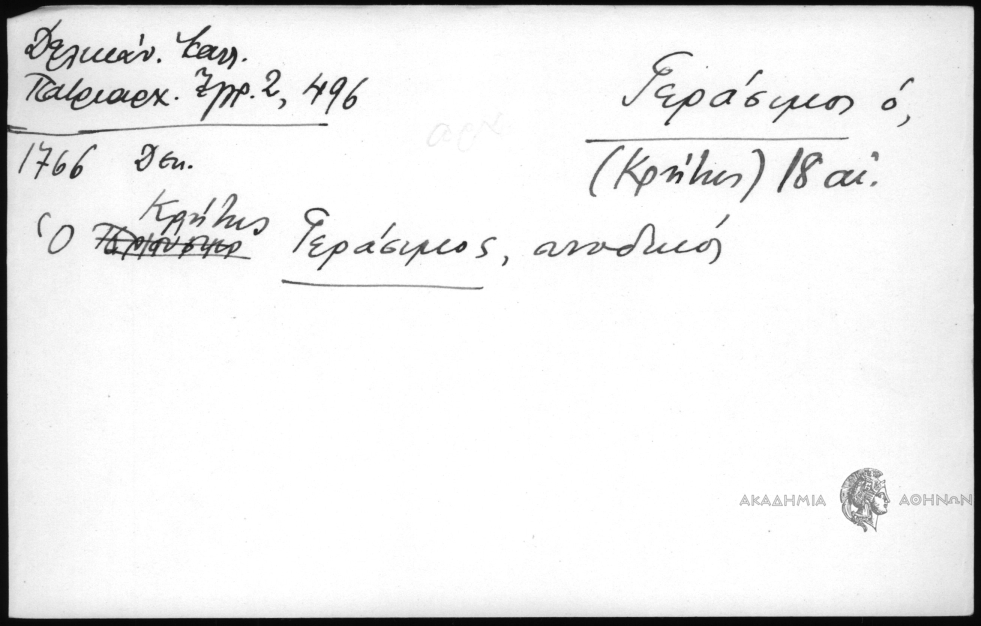 Δελικάν. Καλλ.
Πατριαρχ. Έγγρ. 2, 496
Γεράσιμος ὁ,
(Κρήτης) 18 αἰ.
1766 Δεκ.
Κρήτης
Ὁ Γεράσιμος, συνοδικός
ΑΚΑΔΗΜΙΑ ΑΘΗΝΩΝ